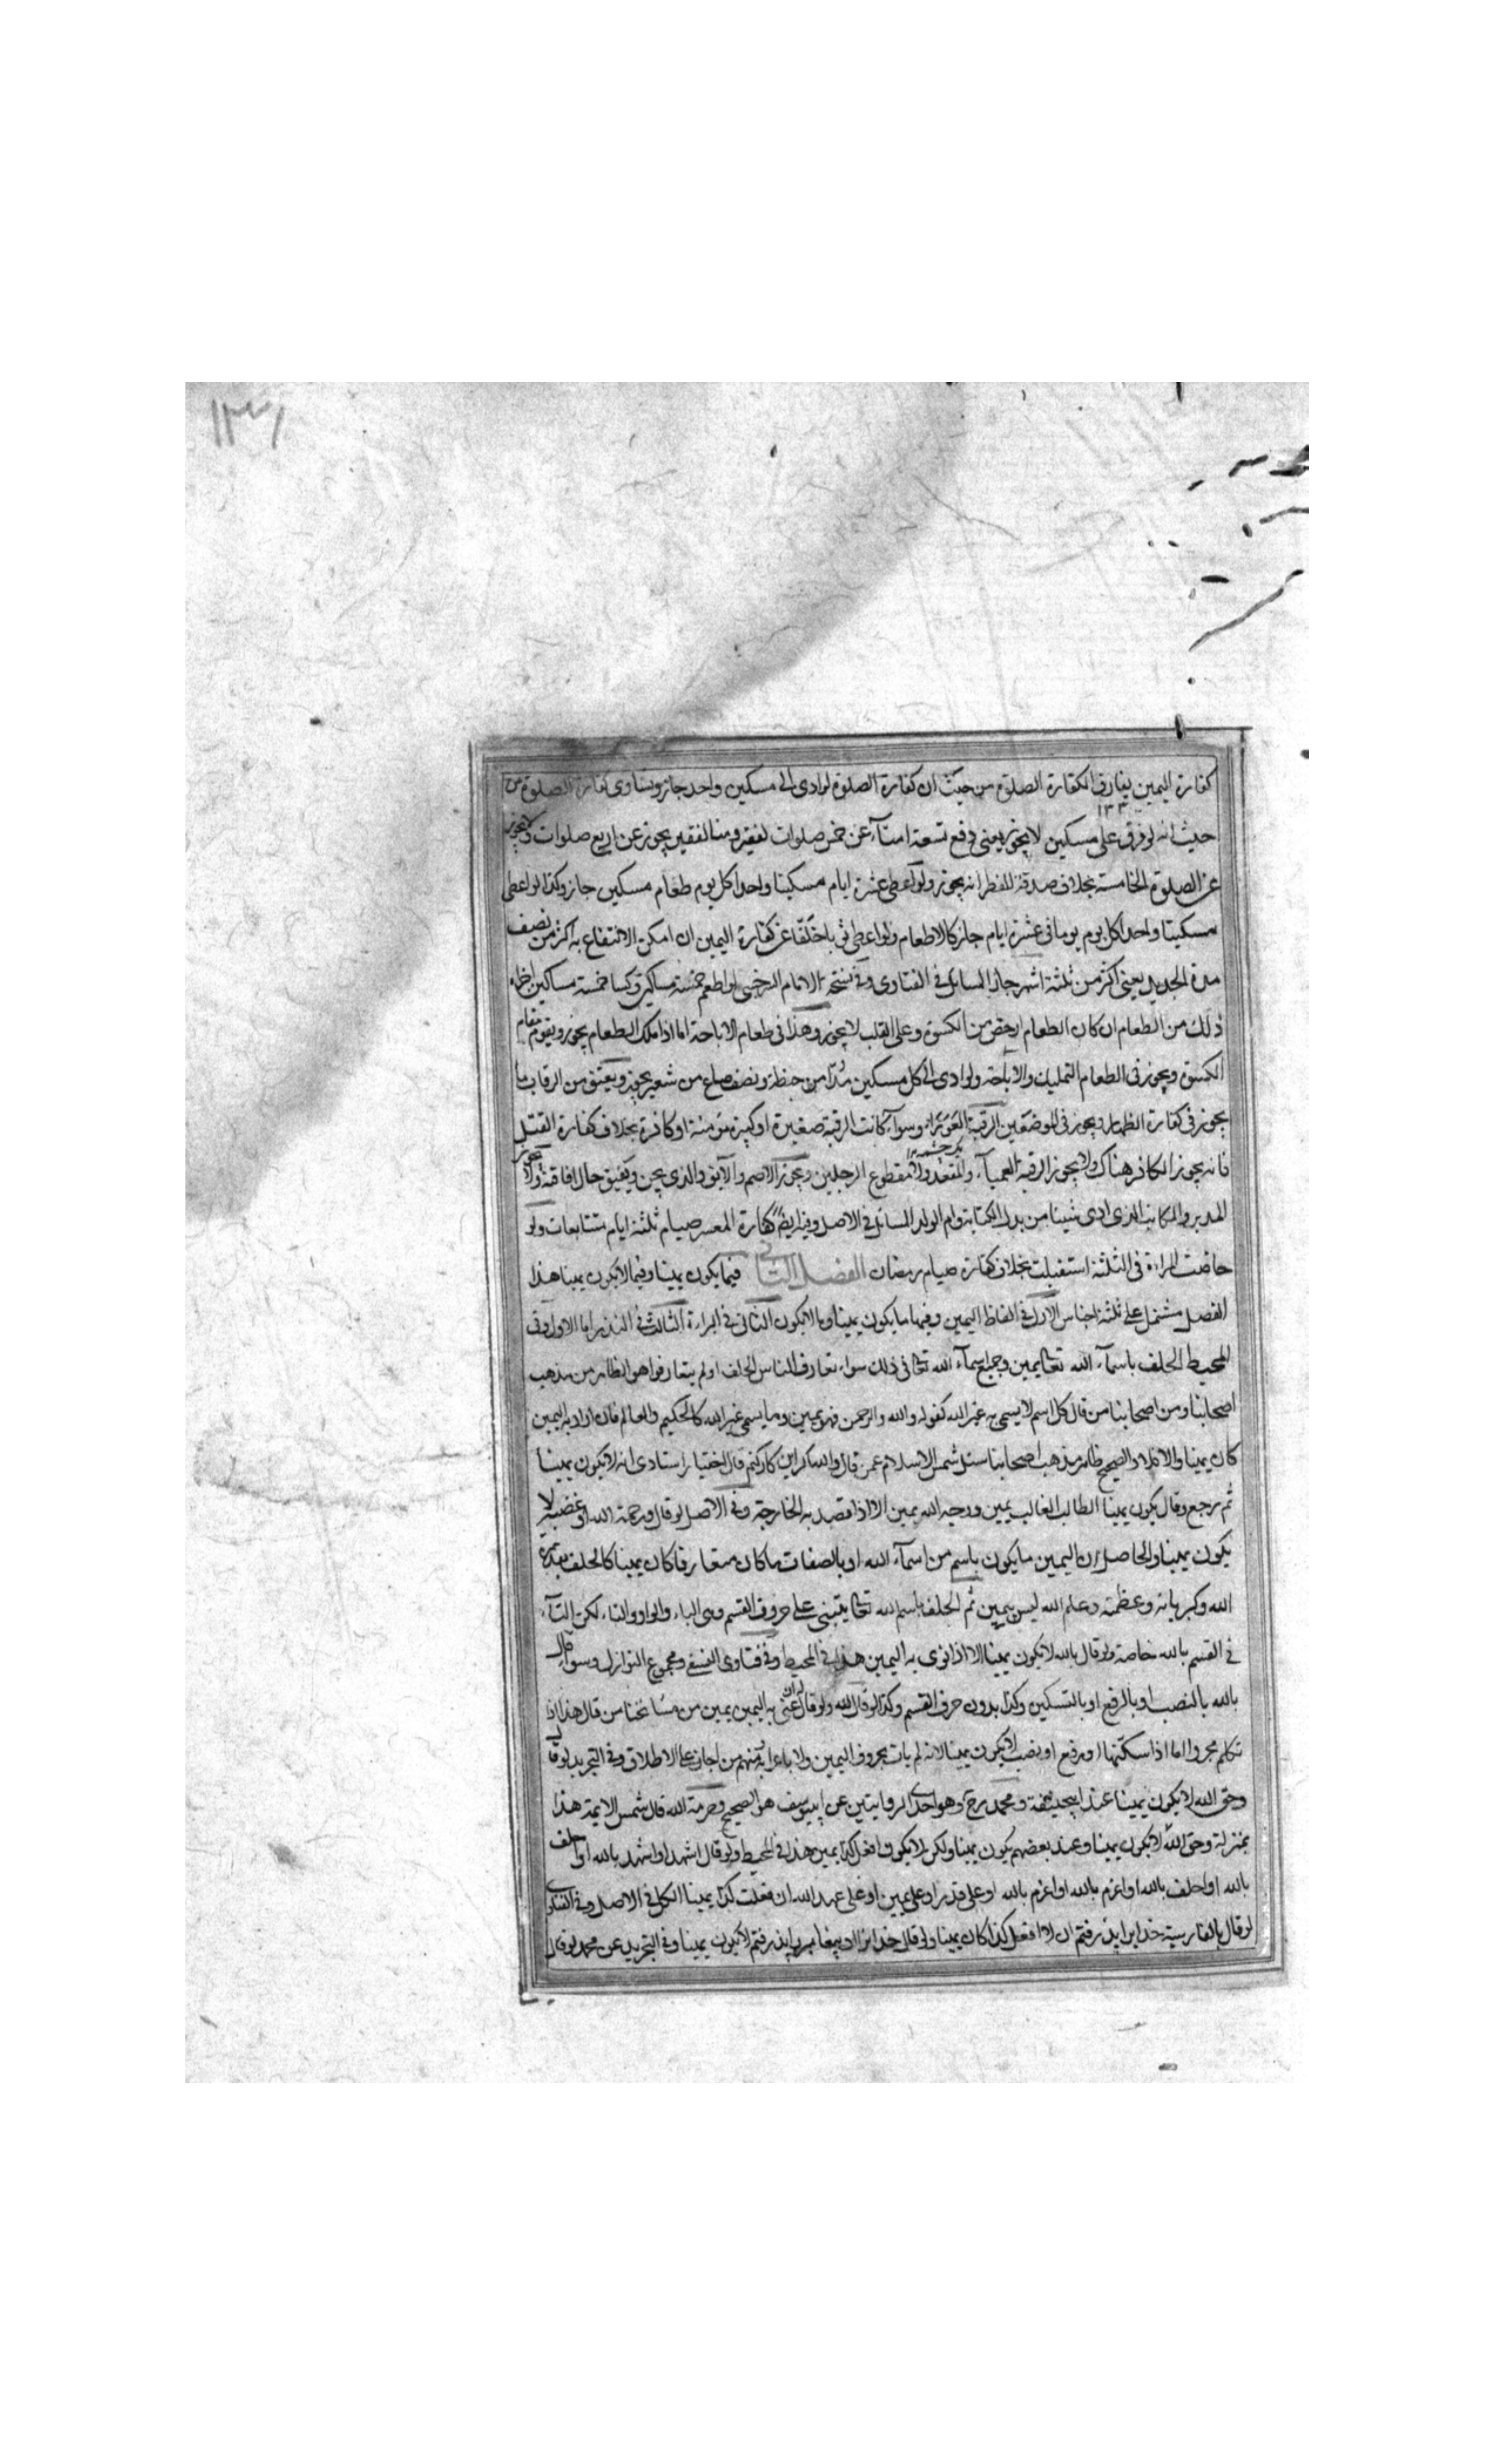 ١٣٧١
كفارة اليمين يفارق لكفارة الصلوة من حيث ان كفارة الصلوة لو ادى الى مسكين واحد جاز وتساوى كفارة الصلوة من
١٣٣
حيث انه لو فرق على مسكين لا يجوز يعنى دفع تسعة امناء عن خمس صلوات لفقير ومنا لفقير يجوز عن اربع صلوات ولا يجوز
عن الصلوة الخامسة بخلاف صدقة الفطر انه يجوز ولو اعطى عشرة ايام مسكينا واحدا كل يوم طعام مسكين جاز وكذا لو اعطى
مسكينا واحدا كل يوم يوما فى عشرة ايام جاز كالاطعام ولو اعطى ثوبا خلقا عن كفارة اليمين ان امكن الانتفاع به اكثر من نصف
مدة الجديد يعنى اكثر من ثلثة اشهر جاز المسائل فى الفتاوى وفى نسخة الامام السرخسى لو اطعم خمسة مساكين وكسا خمسة مساكين اجزاه
ذلك من الطعام ان كان الطعام ارخص من الكسوة وعلى القلب لا يجوز وهذا فى طعام الاباحة اما اذا ملك الطعام يجوز ويقوم مقام
الكسوة ويجوز فى الطعام التمليك والاباحة ولو ادى الى كل مسكين مدا من حنطة ونصف صاع من شعير يجوز ويعتق من الرقاب ما
يجوز فى كفارة الظهار ويجوز فى الموضعين الرقبة العوراء وسواء كانت الرقبة صغيرة او كبيرة مؤمنة او كافرة بخلاف كفارة القتل
فانه يجوز الكافر هناك ولا يجوز الرقبة العمياء والمقعد ولا مقطوع الرجلين ويجوز الاصم والآبق والذى يجن ويفيق حال افاقته ولا يجوز
المدبر والمكاتب الذى ادى شيئا من بدل الكتابة وام الولد المسائل فى الاصل وفيه ايضا كفارة المعسر صيام ثلثة ايام متتابعات ولو
حاضت المراة فى الثلثة استقبلت بخلاف كفارة صيام رمضان الفصل الثانى فيما يكون يمينا وفيما لا يكون يمينا هذا
الفصل مشتمل على ثلثة اجناس الاول فى الفاظ اليمين وفيها ما يكون يمينا وما لا يكون الثانى فى البراءة الثالث فى النذر اما الاول وفى
المحيط الحلف باسماء الله تعالى يمين وجميع اسماء الله تعالى فى ذلك سواء تعارف الناس الحلف او لم يتعارفوا هو الظاهر من مذهب
اصحابنا ومن اصحابنا من قال كل اسم لا يسمى به غير الله كقوله والله والرحمن فهو يمين وما يسمى غير الله كالحكيم والعالم فان اراد به اليمين
كان يمينا والا فلا والصحيح ظاهر مذهب اصحابنا سئل شمس الاسلام عمن قال والله كراين كار كنم قال اختيار استادى انه لا يكون يمينا
ثم رجع وقال يكون يمينا الطالب الغالب يمين ووجه الله يمين الا اذا قصد به الخارجة وفى الاصل لو قال ورحمة الله او غضبه لا
يكون يمينا والحاصل ان اليمين ما يكون باسم من اسماء الله او بالصفات ما كان متعارفا كان يمينا كالحلف بعزة
الله وكبريائه وعظمته وعلم الله ليس بيمين ثم الحلف باسم الله تعالى يبتنى على حروف القسم وهى الباء والواو والتاء لكن التاء
فى القسم بالله خاصة ولو قال بالله لا يكون يمينا الا اذا نوى به اليمين هذا فى المحيط وفى فتاوى النسفى ومجموع النوازل وسواء قال
بالله بالنصب او بالرفع او بالتسكين وكذا بدون حرف القسم وكذا لو قال لله ولو قال ان عنى به اليمين يمين من مشائخنا من قال هذا اذا
تكلم مجرورا اما اذا سكنها او رفع او نصب لا يكون يمينا لانه لم يات بحروف اليمين ولا باعرابه منهم من اجاز على الاطلاق وفى التجريد لو قال
وحق الله لا يكون يمينا عند ابيحنيفة ومحمد رح وهو احدى الروايتين عن ابييوسف هو الصحيح وحرمة الله قال شمس الايمة هذا
بمنزلة وحق الله لا يكون يمينا وعند بعضهم يكون يمينا ولكن لا يكون افعل كذا يمين هذا فى المحيط ولو قال اشهد او اشهد بالله او احلف
بالله او احلف بالله او اعزم بالله او اعزم بالله او على نذر او على يمين او على عهد الله ان فعلت كذا يمينا الكل فى الاصل وفى الفتاوى
لو قال بالفارسية خدايرا پذيرفتم ان لا افعل كذا كان يمينا ولو قال خدايرا وپيغامبر را پذيرفتم لا يكون يمينا وفى التجريد عن محمد لو قال